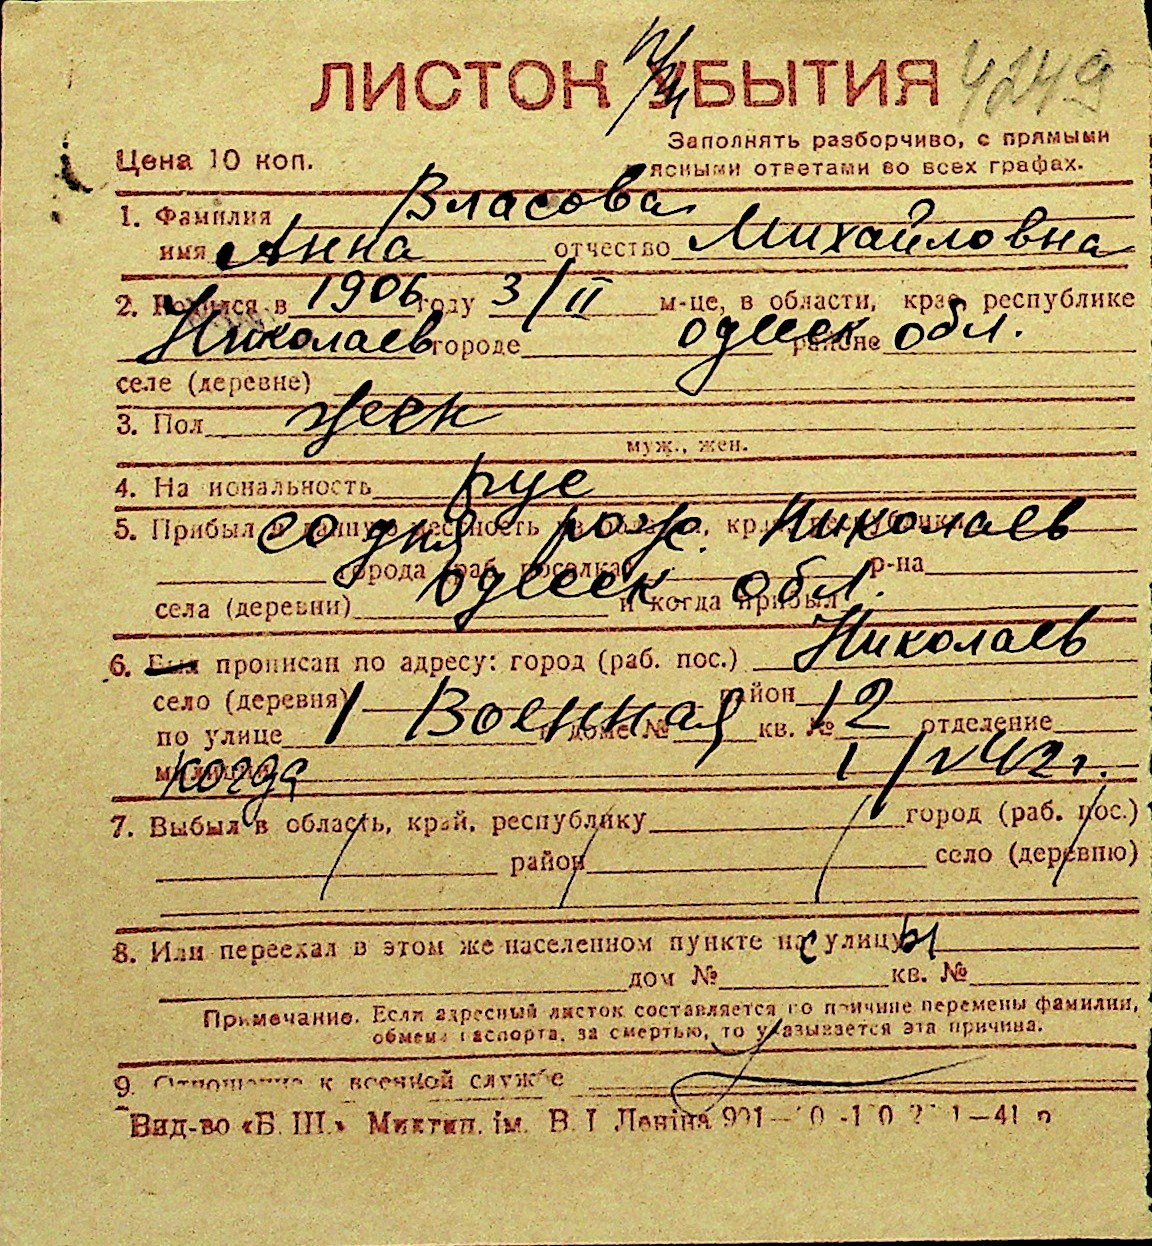 ЛИСТОК УБЫТИЯ 4249
Цена 10 коп.
Заполнять разборчиво, с прямыми
ясными ответами во всех графах.
1. Фамилия Власова
имя Анна отчество Михайловна
2. Родился в 1906 году 3/II м-це, в области, крае, республике
Николаев городе одесск районе обл.
селе (деревне)
3. Пол жен
муж., жен.
4. Национальность рус
5. Прибыл в данную местность из области, края, республики
со дня рожд. Николаев
города (раб. поселка) р-на
одесск обл.
села (деревни) и когда прибыл
6. Был прописан по адресу: город (раб. пос.) Николаев
село (деревня) район
по улице 1 Военная доме № кв. № 12 отделение
милиции когда 1/V 42 г.
7. Выбыл в область, край, республику город (раб. пос.)
район село (деревню)
8. Или переехал в этом же населенном пункте на с улицу ы
дом № кв. №
Примечание. Если адресный листок составляется по причине перемены фамилии,
обмена паспорта, за смертью, то указывается эта причина.
9. Отношение к военной службе
Вид-во «Б. Ш.» Миктип. ім. В. І. Леніна